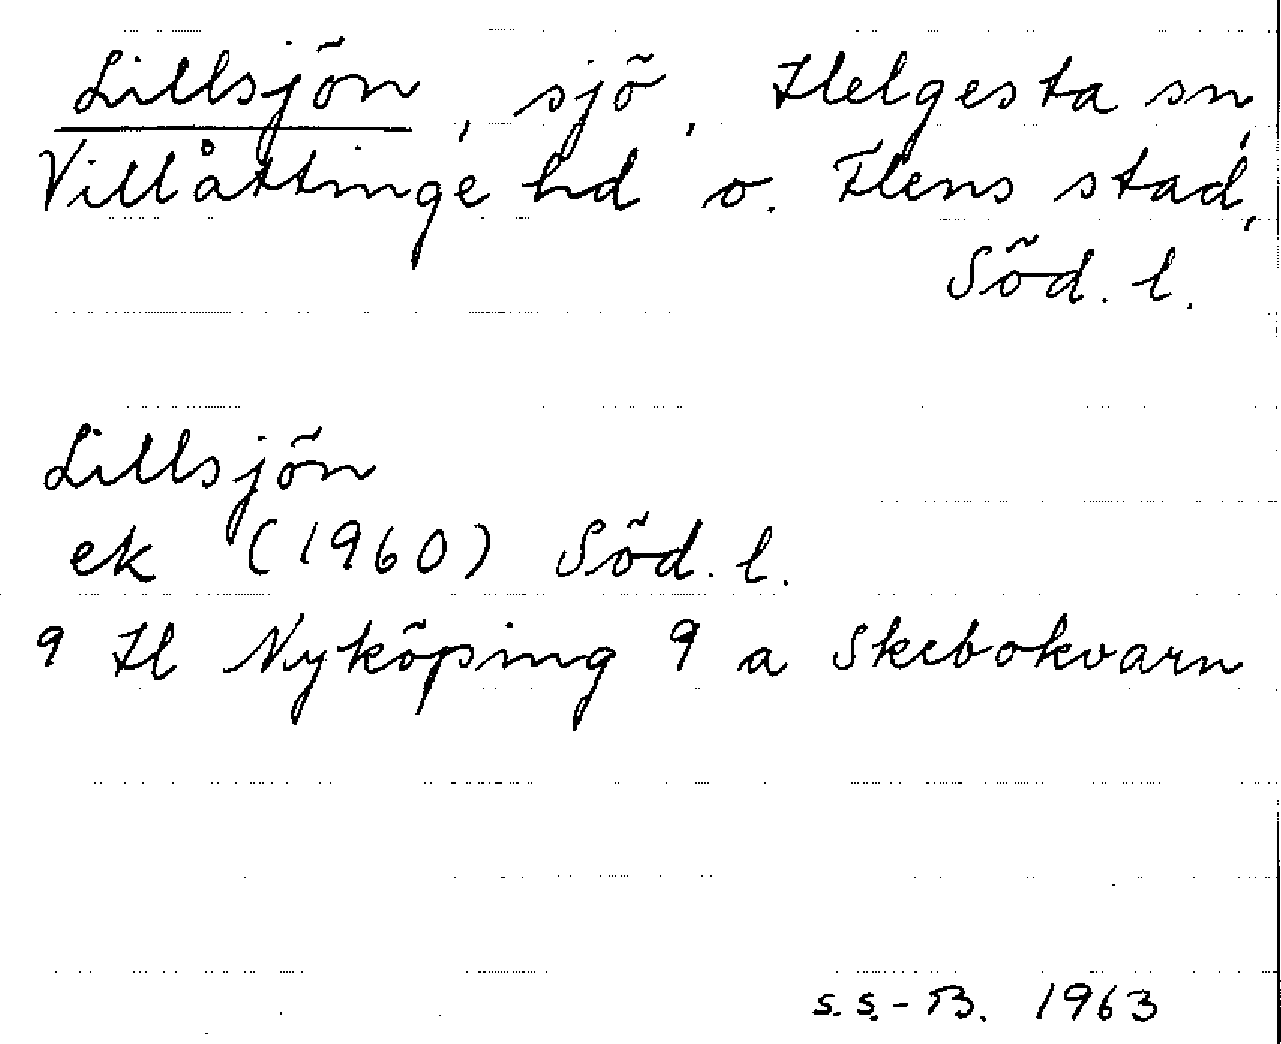 Lillsjön, sjö, Helgesta sn,
Villåttinge hd o. Flens stad,
Söd. l.
Lillsjön
ek (1960) Söd. l.
9 H Nyköping 9 a Skebokvarn
S.S.-B. 1963